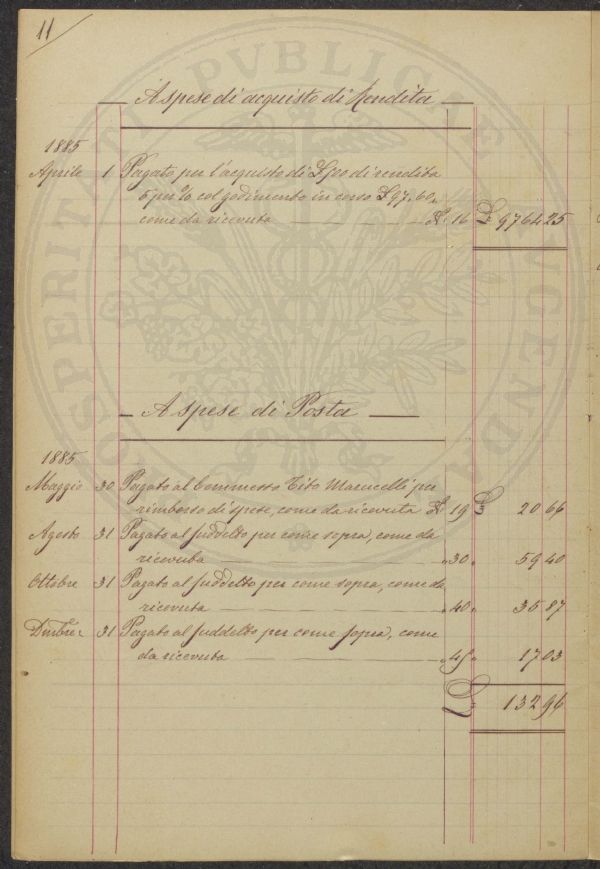 11
A spese di acquisto di Rendita
1885
Aprile 1 Pagato per l'acquisto di di rendita
5 per % col godimento in corso £ 97,60,
come da ricevuta N. 16 £ 9764 25
A spese di Posta
1885
Maggio 30 Pagato al Commesso Tito Marucelli per
rimborso di spese, come da ricevuta N. 19 £ 20 66
Agosto 31 Pagato al suddetto per come sopra, come da
ricevuta „ 30 „ 59 40
Ottobre 31 Pagato al suddetto per come sopra, come da
ricevuta „ 40 „ 35 87
Dmbre: 31 Pagato al suddetto per come sopra, come
da ricevuta „ 45 „ 17 03
£ 132 96
PROSPERITATI PVBLICAE AVGENDAE